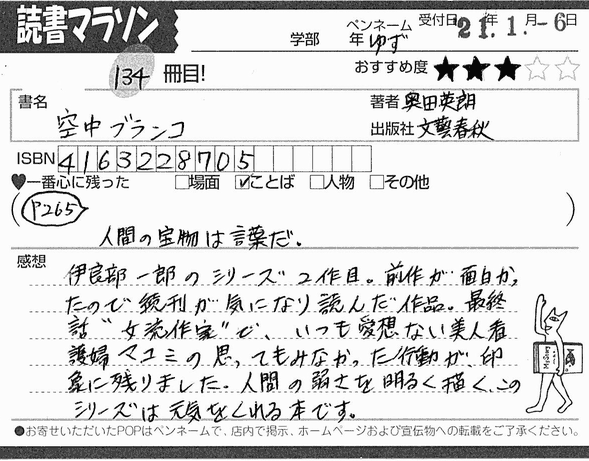 読書マラソン
学部 年 ペンネーム ゆず 受付日 21年.1.月-6日
134 冊目! おすすめ度 ★★★☆☆
書名 空中ブランコ
著者 奥田英朗
出版社 文藝春秋
ISBN 4163228705
♥一番心に残った □場面 ☑ことば □人物 □その他
(P265)
人間の宝物は言葉だ。
感想
伊良部一郎のシリーズ2作目。前作が面白かっ
たので続刊が気になり読んだ作品。最終
話"女流作家"で、いつも愛想ない美人看
護婦マユミの思ってもみなかった行動が、印
象に残りました。人間の弱さを明るく描く、この
シリーズは元気をくれる本です。
●お寄せいただいたPOPはペンネームで、店内で掲示、ホームページおよび宣伝物への転載をご了承ください。